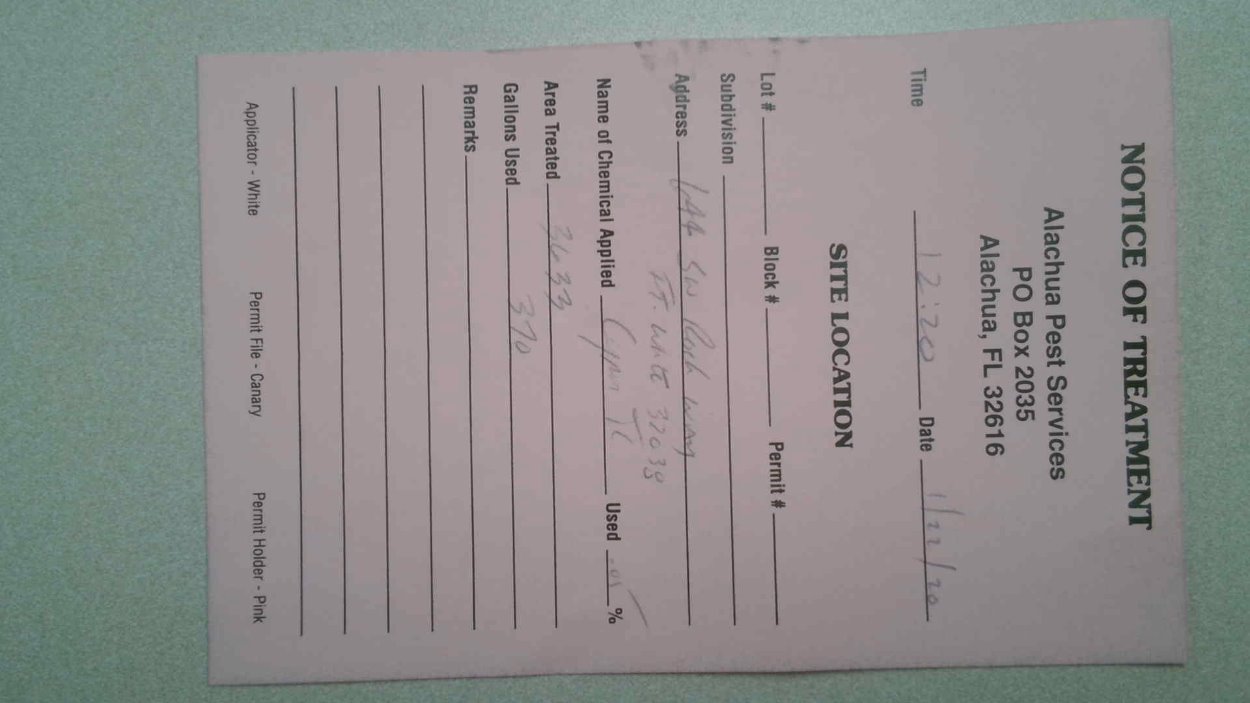 NOTICE OF TREATMENT
Alachua Pest Services
PO Box 2035
Alachua, FL 32616
Time 12:20 Date 1/22/20
SITE LOCATION
Lot # Block # Permit #
Subdivision
Address 144 SW Rush way
Ft. White 32038
Name of Chemical Applied Used .05 %
Area Treated 3633
Gallons Used 370
Remarks
Applicator - White Permit File - Canary Permit Holder - Pink